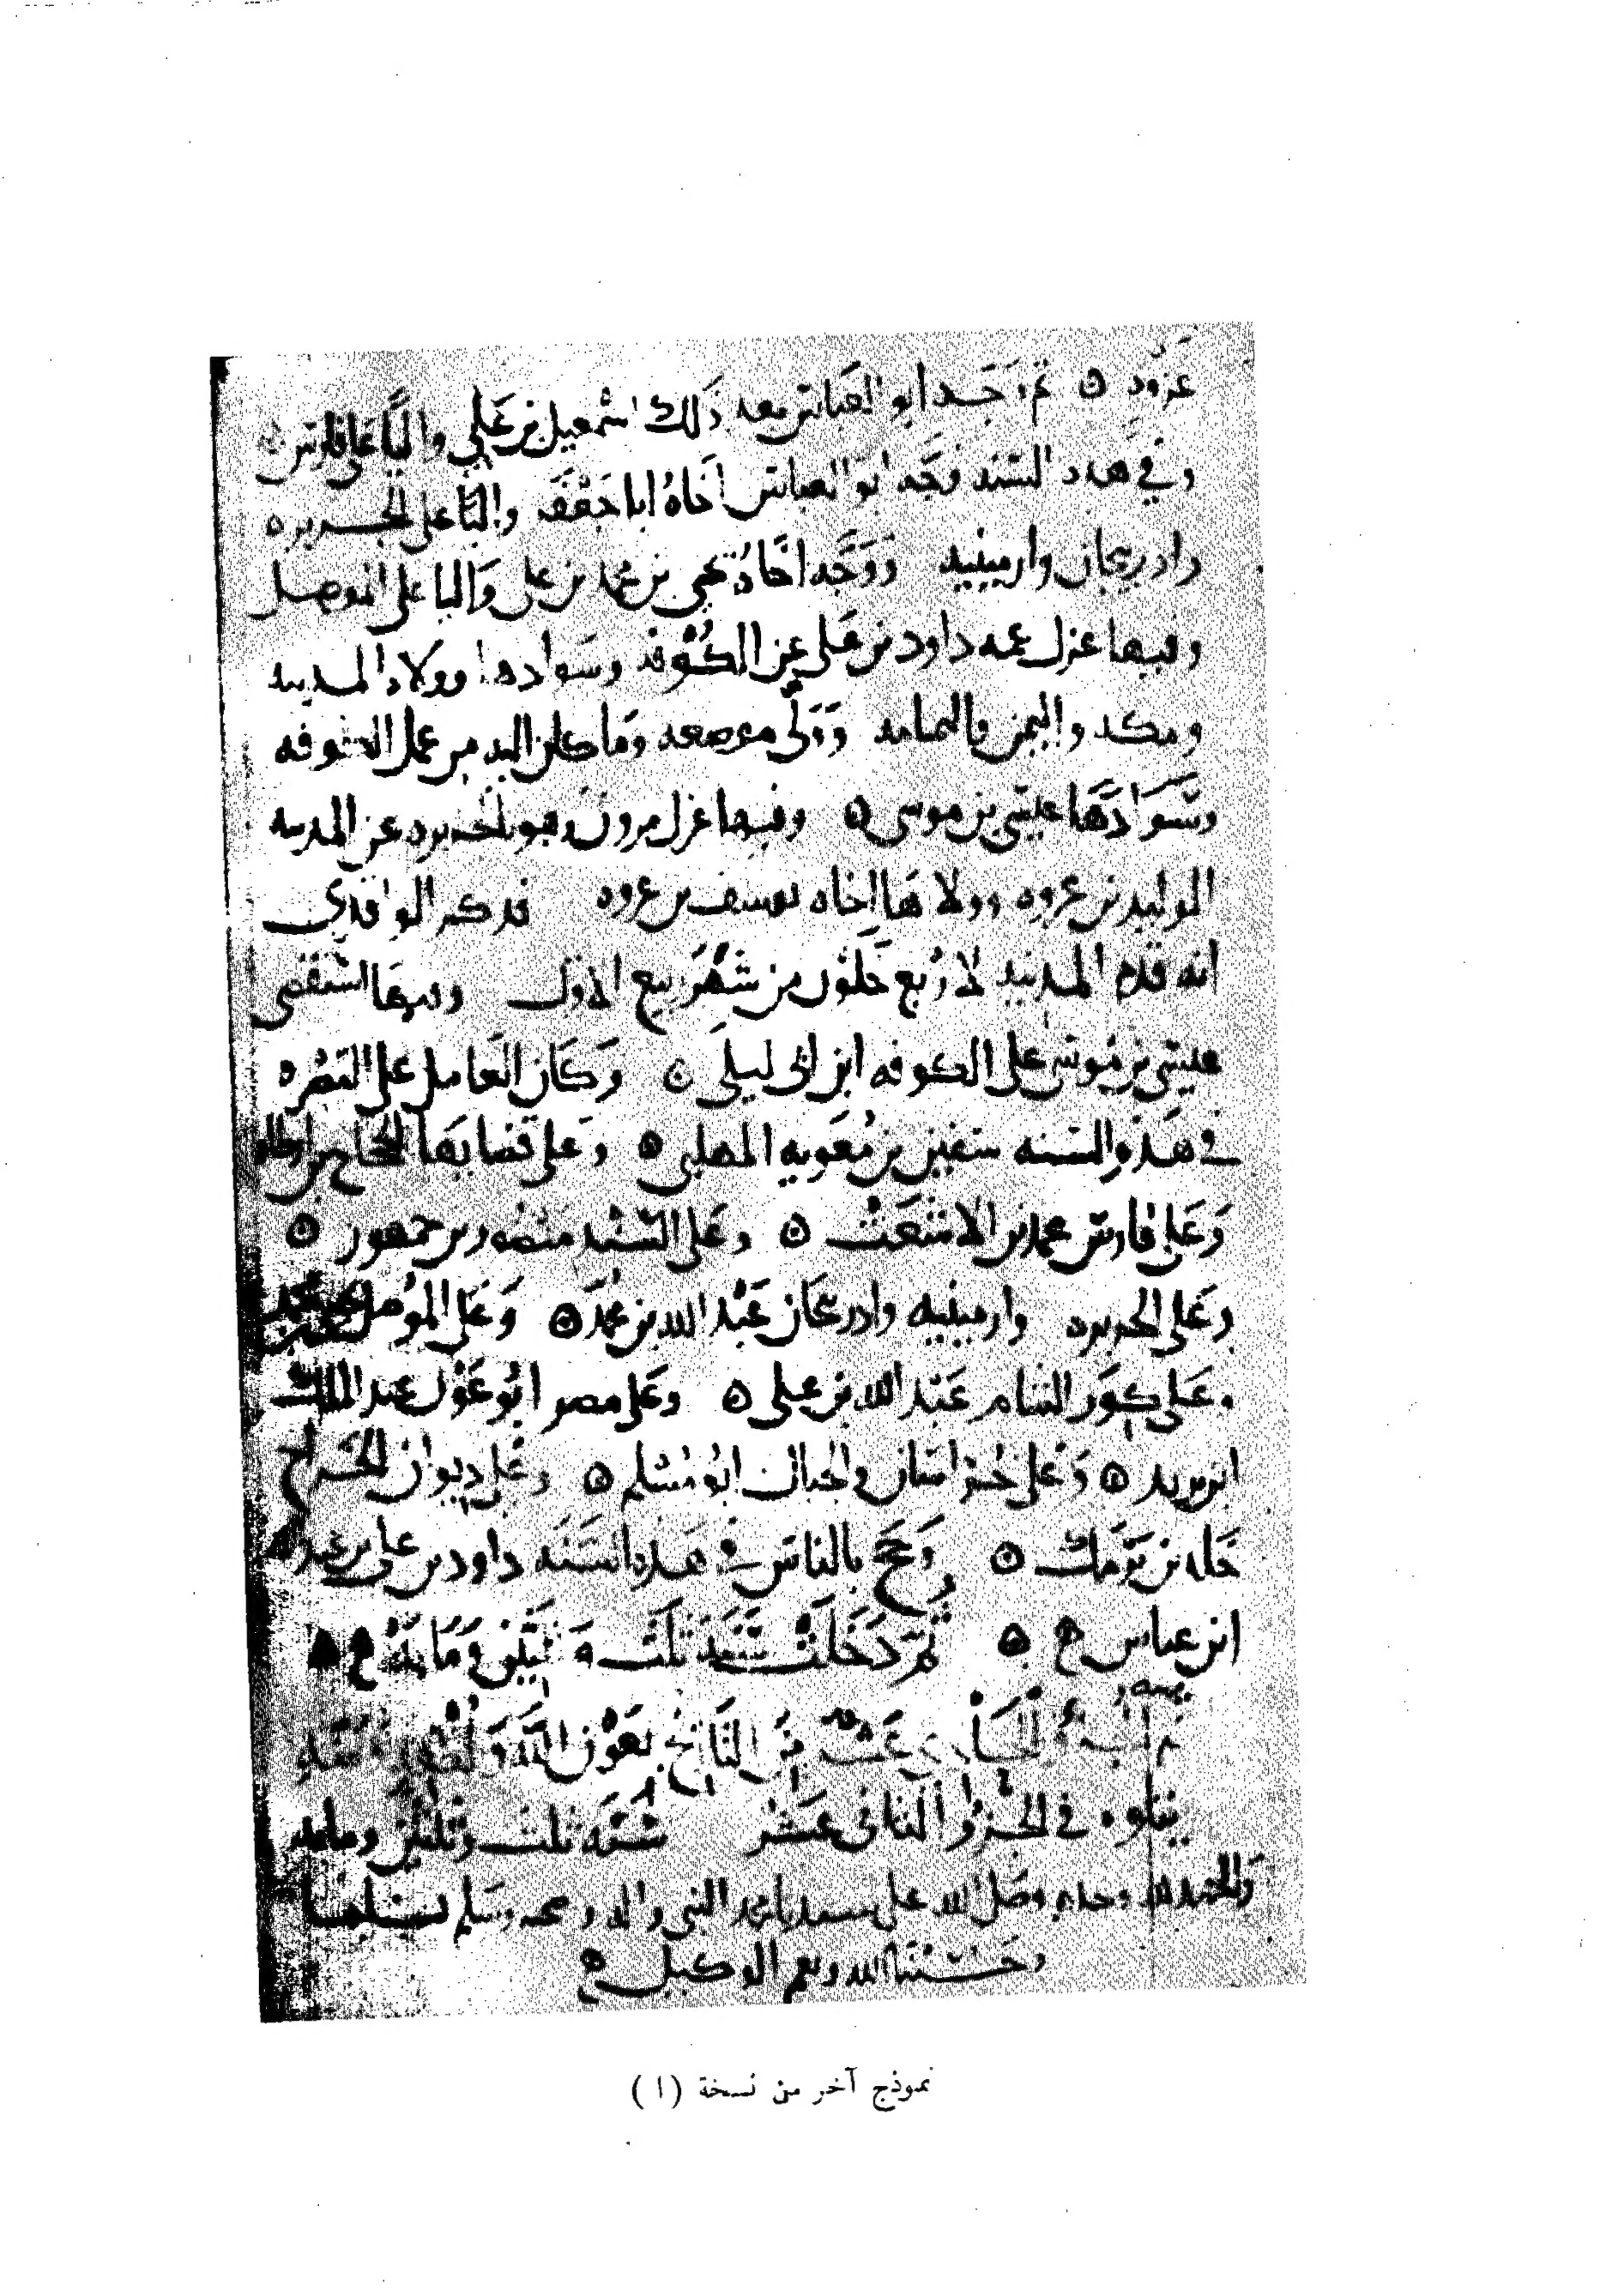 عزود ۞ ثم وجه ابو العباس بعد ذلك اسمعيل بن علي واليا على فارس
وفي هذه السنه وجه ابو العباس اخاه ابا جعفر واليا على الجزيره
واذربيجان وارمينيه ووجه اخاه يحيى بن محمد بن علي واليا على الموصل
وفيها عزل عمه داود بن علي عن الكوفه وسوادها وولاه المدينه
ومكه واليمن واليمامه وولى موضعه وما كان اليه من عمل الكوفه
وسوادها عيسى بن موسى ۞ وفيها عزل مرون وهو بالجزيره عن المدينه
الوليد بن عروه وولاها اخاه يوسف بن عروه فذكر الواقدي
انه قدم المدينه لاربع خلون من شهر ربيع الاول وفيها استقضى
عيسى بن موسى على الكوفه ابن ابي ليلى ۞ وكان العامل على البصره
في هذه السنه سفين بن معويه المهلبي ۞ وعلى قضايها الحجاج بن ارطاه
وعلى فارس محمد بن الاشعث ۞ وعلى السند منصور بن جمهور ۞
وعلى الجزيره وارمينيه واذربيجان عبد الله بن محمد ۞ وعلى الموصل يحيى بن محمد
وعلى كور الشام عبد الله بن علي ۞ وعلى مصر ابو عون عبد الملك
ابن يزيد ۞ وعلى خراسان والجبال ابو مسلم ۞ وعلى ديوان الخراج
خلد بن برمك ۞ وحج بالناس في هذه السنه داود بن علي بن عبد الله
ابن عباس ۞ ثم دخلت سنه ثلث وثلثين ومايه ۞
الحادي عشر من التاريخ بعون الله
يتلوه في الجزو الثاني عشر سنه ثلث وثلثين ومايه
والحمد لله وحده وصلى الله على سيدنا محمد النبي واله وصحبه وسلم تسليما
وحسبنا الله ونعم الوكيل
نموذج آخر من نسخة (ا)